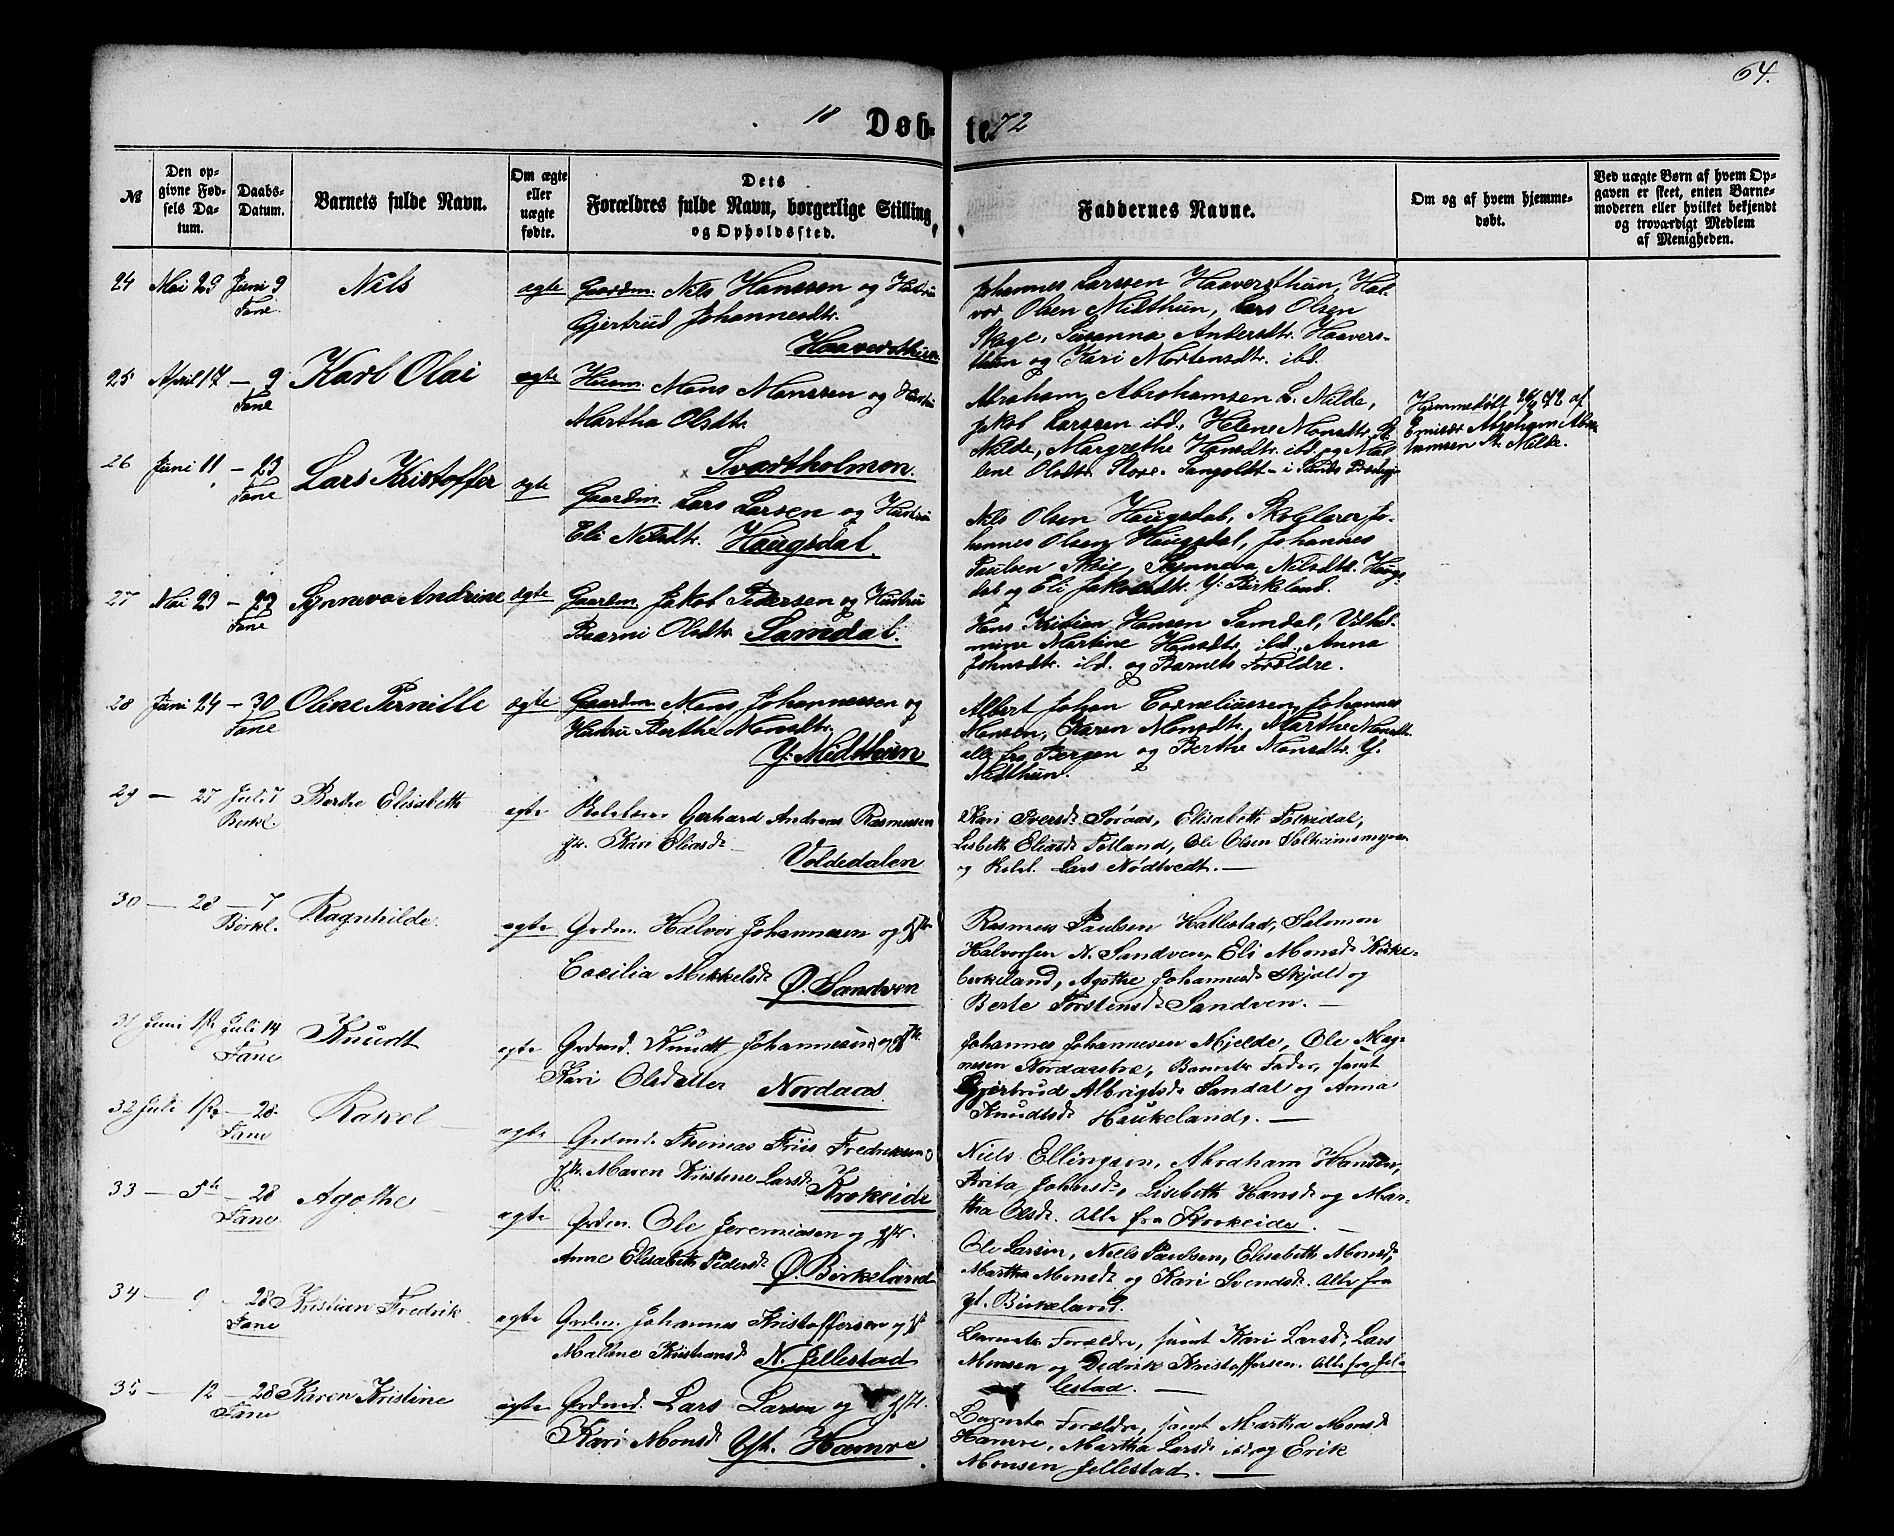 64.
18 Døb- te. 72
№
Den op-
givne Fød-
sels Da-
tum.
Daabs-
Datum.
Barnets fulde Navn.
Om ægte
eller
uægte
fødte.
Dets
Forældres fulde Navn, borgerlige Stilling,
og Opholdssted.
Faddernes Navne.
Om og af hvem hjemme-
døbt.
Ved uægte Børn af hvem Op-
gaven er skeet, enten Barne-
moderen eller hvilket bekjendt
og troværdigt Medlem
af Menigheden.
24 Mai 29 Juni 9 Nils ægte Gaardm. Nils Hanssen og Hustru
Fane Gjertrud Johannesdtr.
Haaversthun
Johannes Larssen Haaversthun, Hal-
vor Olsen Midthun, Lars Olsen
Skage, Susanna Andersdtr. Haavers-
thun og Kari Mortensdtr. ibd.
25 April 17 — 9 Karl Olai ægte Husm. Mons Monssen og Hustru
Fane Martha Olsdtr.
Svartholmen.
Abraham Abrahamsen L. Milde,
Jakob Larssen ibd., Helene Monsdtr. St.
Milde, Margrethe Hansdtr. ibd. og Mal-
lene Olsdtr. Skore-Sangoldt - i Sunds Prestegj.
Hjemmedøbt 26/4 72 af
Emisær Abraham Abra-
hamsen St. Milde.
26 Juni 11 — 23 Lars Kristoffer ægte Gaardm. Lars Larsen og Hustru
Fane Eli Nilsdtr. Haugsdal.
Nils Olsen Haugsdal, Skolelærer Jo-
hannes Olsen Haugsdal, Johannes
Paulsen Skeie, Synneva Nilsdtr. Haugs
dal og Eli Jakobsdtr. Y: Birkeland.
27 Mai 29 — 23 Synneva Andrine ægte Gaardm. Jakob Pedersen og Hustru
Fane Barni Olsdtr. Samdal.
Hans Kristian Hansen Samdal, Vilhel-
mine Martine Hansdtr. ibd., Anna
Johnsdtr. ibd. og Barnets Forældre.
28 Juni 24 — 30 Oline Pernille ægte Gaardm. Mons Johannessen og
Fane Hustru Berthe Monsdtr.
Y: Midthun
Albert Johan Corneliussen, Johannes
Monsen, Karen Monsdtr., Marthe Monsdtr.
alle fra Bergen og Berthe Monsdtr. Y.
Midthun.
29 — 27 Juli 7 Berthe Elisabeth ægte Gerhard Andreas Rasmussen
Birkl. Kari Eliasd.
Voldedalen
Kari Iversd. Søraas, Elisabeth Folkedal,
Lisbeth Eliasd. Folland, Ole Olsen Solheimsmyren
og Lars Nødtvedt. —
30 — 28 — 7 Ragnhilde ægte Grdm. Halvor Johannesen og Hstr.
Birkl. Cecilia Mikkelsd. Ø. Sandven
Rasmus Paulsen Hallestad, Salomon
Halvorsen N. Sandven, Eli Monsd. Kirke-
birkeland, Agothe Johannesd. Skjold og
Berte Torstensd. Sandven. —
31 Juni 1ste Juli 14 Knudt ægte Grdmd. Knudt Johannesen og Hstr.
Fane Kari Olsdatter Nordaas
Johannes Johannesen Mjelde, Ole Mag-
nesen Nordaastræ, Barnets Fader, samt
Gjertrud Albrigtsd. Sandal og Anna
Knudtsd. Haukeland. —
32 Juli 1ste — 28 Rakel ægte Grdmd. Thomas Friis Fredriksen o
Fane Hstr. Maren Kristine Larsd. Krokeide
Niels Ellingsen, Abraham Hansen,
Brita Johnsd., Lisebeth Hansd. og Mar-
tha Olsd. Alle fra Krokeide. —
33 — 5te — 28 Agothe ægte Grdm. Ole Jeremiasen og Hstr.
Fane Anne Elisabeth Pedersd. Ø. Birkeland
Ole Larsen, Niels Paulsen, Elisabeth Monsd.,
Martha Monsd. og Kari Svendsd. Alle fra
Birkeland.
34 — 9 — 28 Kristian Fredrik ægte Grdm. Johannes Kristoffersen og Hstr.
Fane Malene Kristiansd. N. Jellestad
Barnets Forældre, samt Kari Larsd., Lars
Monsen og Didrik Kristoffersen. Alle fra Jel-
lestad. —
35 — 12 — 28 Karen Kristine ægte Grdmd. Lars Larsen og Hstr.
Fane Kari Monsd. Yt. Hamre
Barnets Forældre, samt Martha Monsd.
Hamre, Martha Larsd. ibd. og Erik
Monsen Jellestad. —